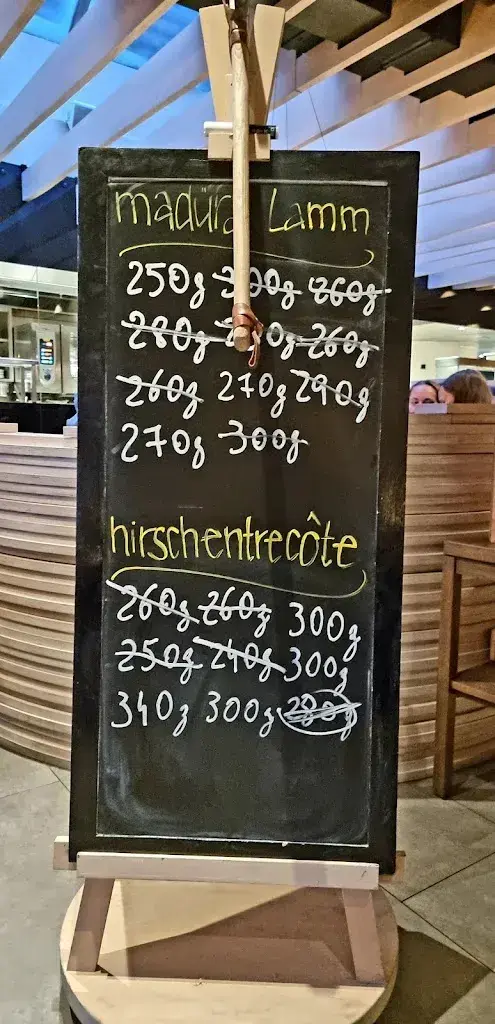 madüra Lamm
250g 300g 260g
280g 260g
260g 270g 290g
270g 300g
hirschentrecôte
260g 260g 300g
250g 240g 300g
340g 300g